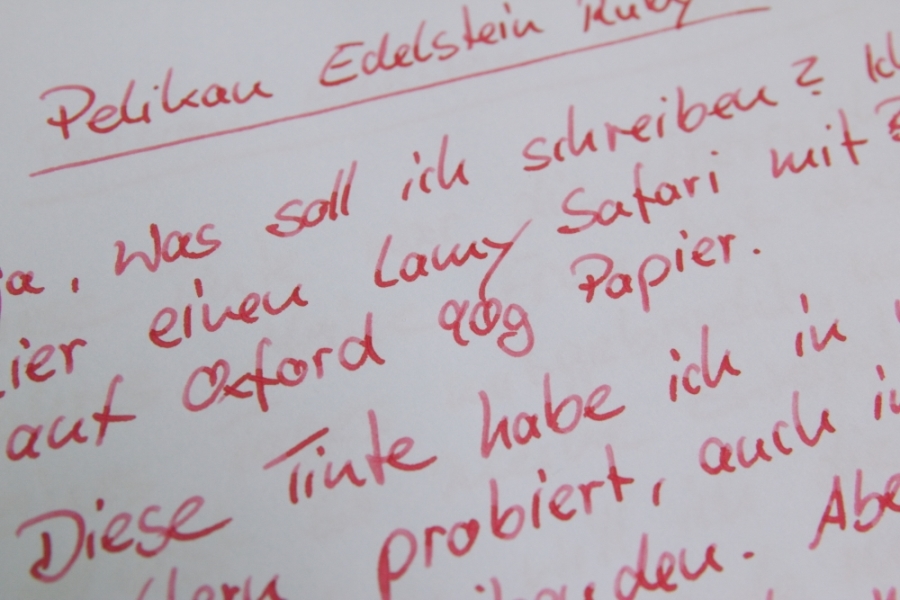 Pelikan Edelstein Ruby
ja. Was soll ich schreiben?
einen Lamy Safari mit
auf Oxford 90g Papier.
Diese Tinte habe ich in
probiert, auch